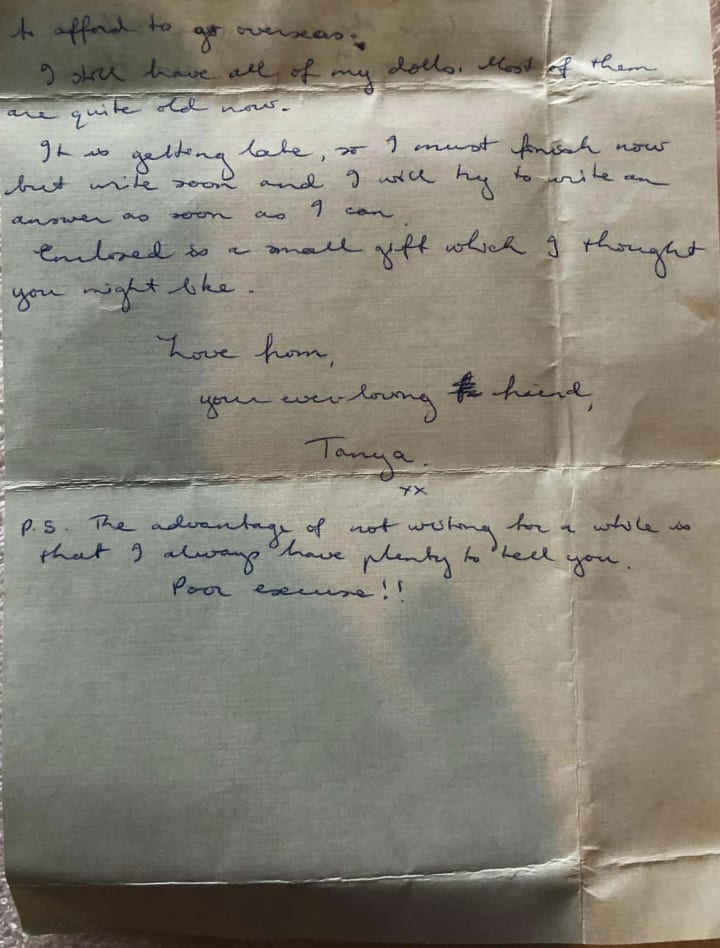 to afford to go overseas.
I still have all of my dolls. Most of them
are quite old now.
It is getting late, so I must finish now
but write soon and I will try to write an
answer as soon as I can.
Enclosed is a small gift which I thought
you might like.
Love from,
your ever-loving friend,
Tanya.
xx
P.S. The advantage of not writing for a while is
that I always have plenty to tell you.
Poor excuse!!